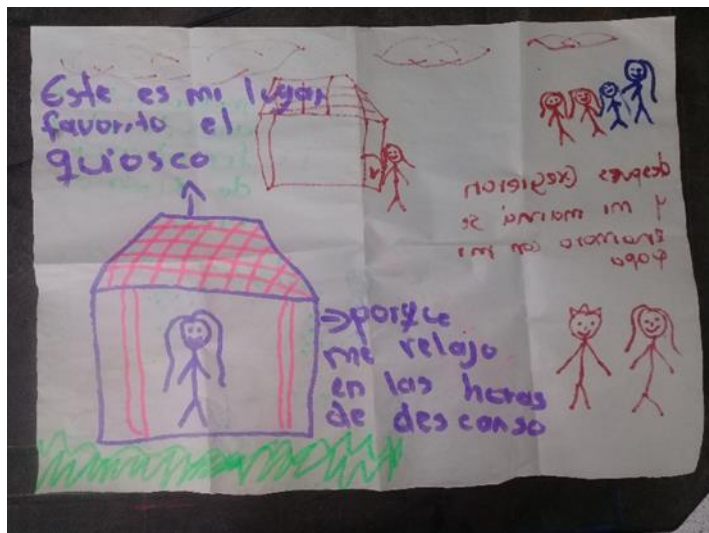 Este es mi lugar
favorito el
quiosco
porque
me relajo
en las horas
de descanso
despues Cresieron
y mi mamá se
Enamoro con mi
Papa